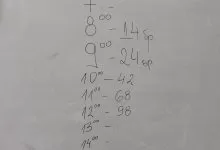 8⁰⁰ - 14 бр
9⁰⁰ - 24 бр
10⁰⁰ - 42
11⁰⁰ - 68
12⁰⁰ - 98
13⁰⁰ -
14⁰⁰ -